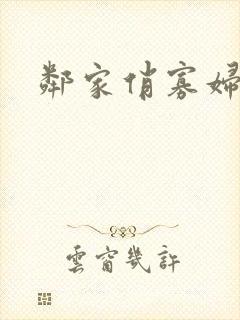 鄰家俏寡婦
雲窗幾許